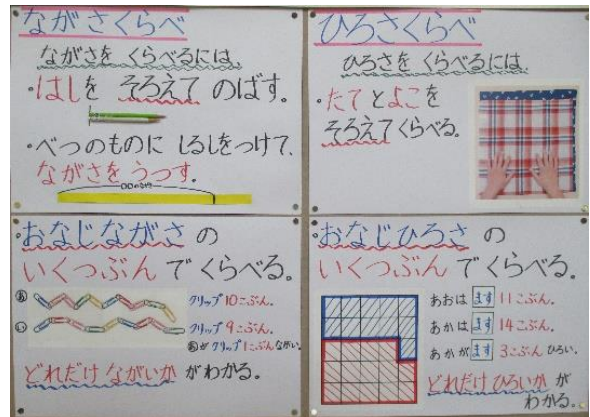 ながさくらべ
ながさを くらべるには、
・はしを そろえて のばす。
・べつのものに しるしをつけて、
ながさを うつす。
ひろさくらべ
ひろさを くらべるには、
・たてとよこを
そろえて くらべる。
・おなじながさの
いくつぶん でくらべる。
あ クリップ10こぶん。
い クリップ9こぶん。
あが クリップ1こぶんながい。
どれだけ ながいか がわかる。
・おなじひろさ の
いくつぶん でくらべる。
あおは ます 11こぶん。
あかは ます 14こぶん。
あかが ます 3こぶん ひろい。
どれだけ ひろいか が
わかる。